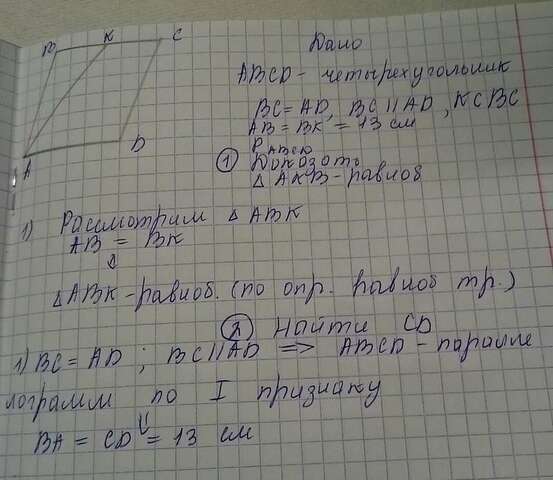 B K C
A D
Дано
ABCD - четырехугольник
BC = AD, BC || AD, K ⊂ BC
AB = BK = 13 см
P ABCD
① Докозоть
△ AKB - равноб
1) Рассмотрим △ ABK
AB = BK
⇓
△ABK - равноб. (по опр. равноб тр.)
② Найти CD
1) BC = AD ; BC || AD => ABCD - паралле
лограмм по I признаку
⇓
BA = CD = 13 см